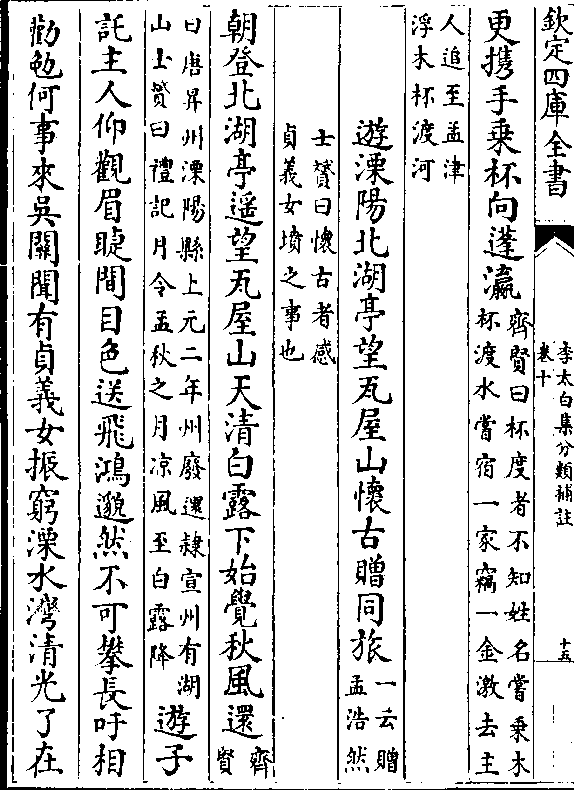 欽定四庫全書
李太白集分類補註
卷十
十五
更携手乗杯向蓬瀛齊賢曰杯度者不知姓名嘗乗木
杯渡水嘗宿一家竊一金激去主
人追至孟津
浮木杯渡河
遊溧陽北湖亭望瓦屋山懷古贈同旅一云贈
孟浩然
士贇曰懷古者感
貞義女墳之事也
朝登北湖亭遥望瓦屋山天清白露下始覺秋風還齊
賢
曰唐昇州溧陽縣上元二年州廢還隷宣州有湖
山士贇曰禮記月令孟秋之月凉風至白露降
遊子
託主人仰觀眉睫間目色送飛鴻邈然不可攀長吁相
勸勉何事來吳關聞有貞義女振窮溧水灣清光了在